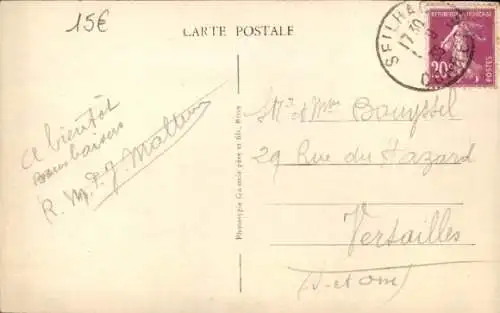 15€
CARTE POSTALE
SEILHAC
17 30
REPUBLIQUE FRANÇAISE
20
POSTES
Mr et Mme Bouyssel
29 Rue du Hazard
Versailles
(S-et-Oise)
A bientôt
Bons baisers
R. M. P. J.
Phototypie
père et fils,